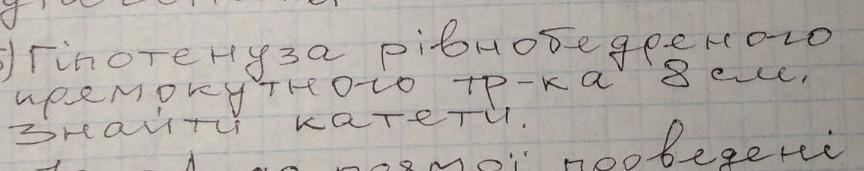 5) Гіпотенуза рівнобедреного
прямокутного тр-ка 8 см.
Знайти катети.
прямої проведені